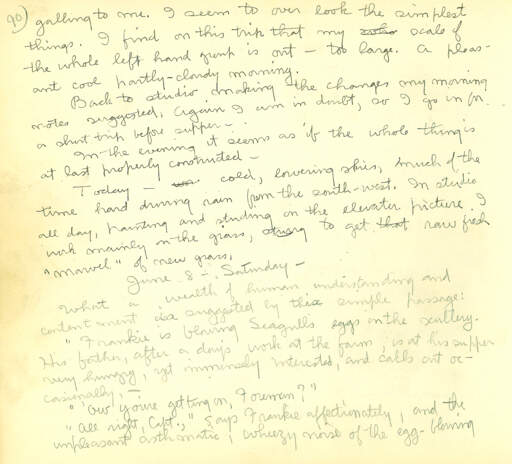 90) galling to me. I seem to over look the simplest
things. I find on this trip that my scale of
the whole left hand group is out — too large. A pleas-
ant cool partly-cloudy morning.
Back to studio making the changes my morning
notes suggested, Again I am in doubt, so I go in for
a short trip before supper —
In the evening it seems as if the whole thing is
at last properly constructed —
Today — cold, lowering skies, much of the
time hard driving rain from the south-west. In studio
all day, painting and studying on the elevator picture. I
work mainly on the grass, trying to get that raw fresh
"marvel" of new grass,
June 8 — Saturday —
What a wealth of human understanding and
contentment is suggested by this simple passage:
"Frankie is blowing Seagulls eggs in the scullery.
His father, after a day's work at the farm, is at his supper
very hungry, yet immensely interested, and calls out oc-
casionally, —
"'Ow you're getting on, Foreman?"
"All right, Capt.," says Frankie affectionately, and the
unpleasant asthmatic, wheezy noise of the egg-blowing